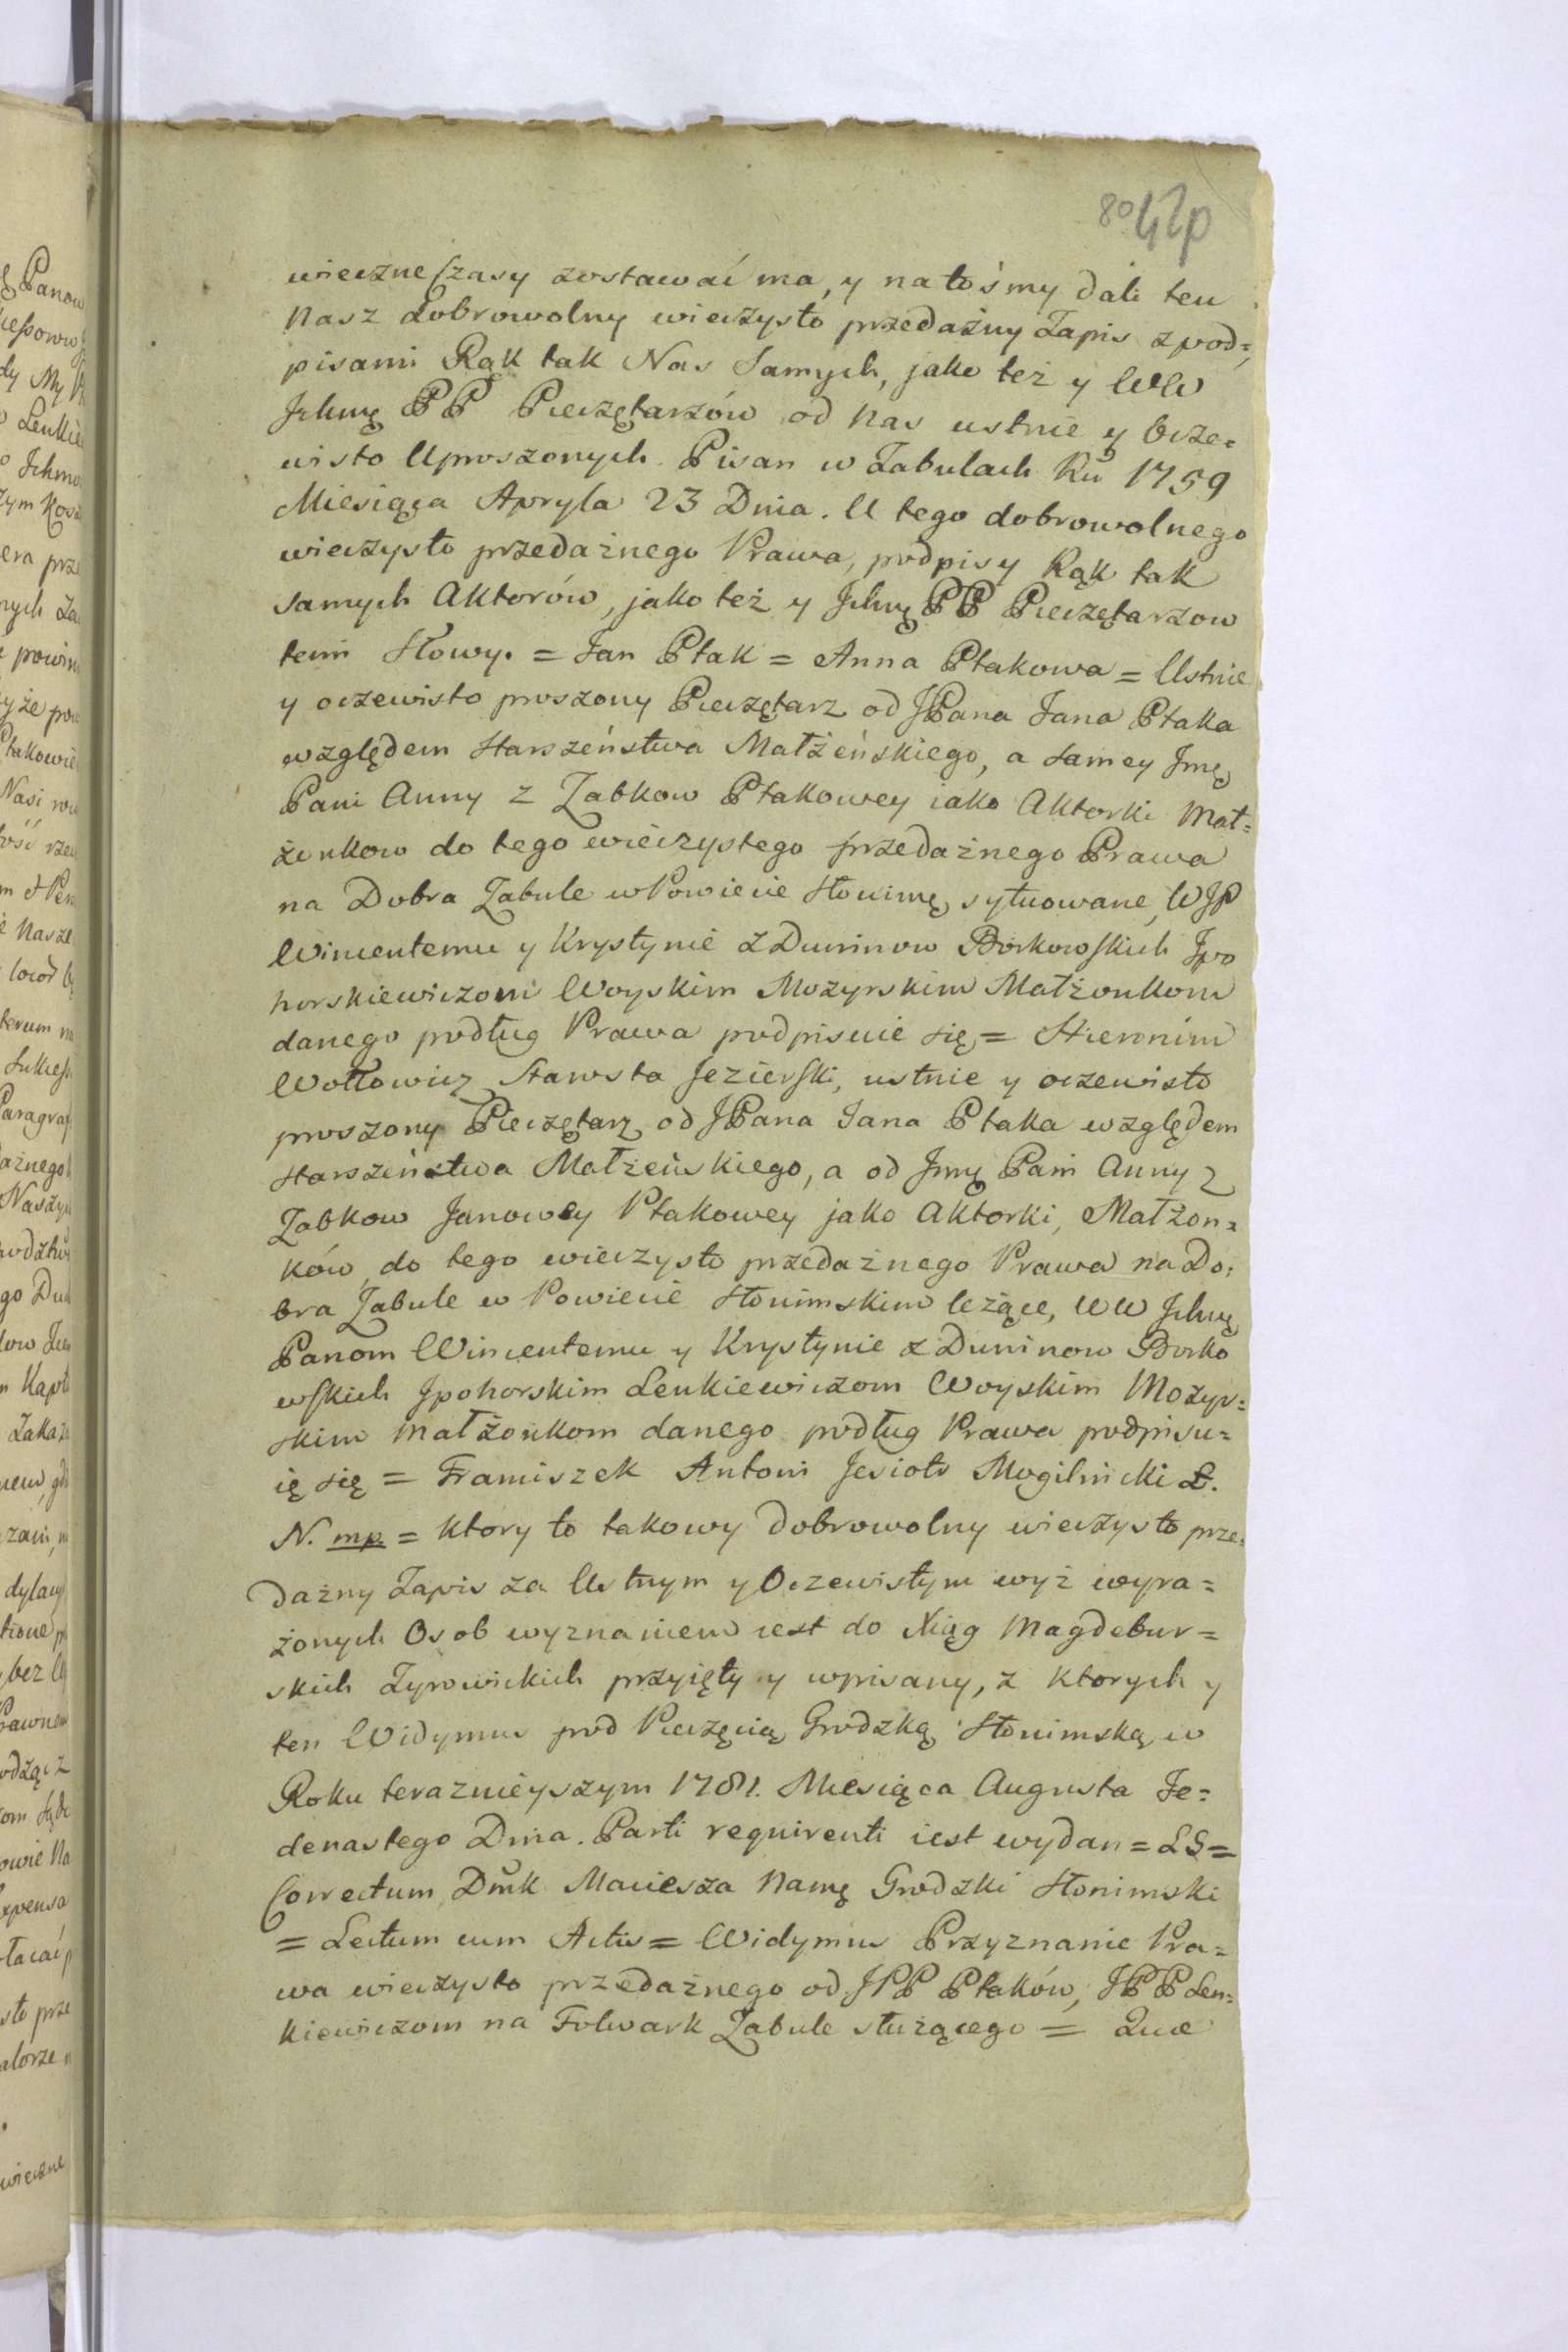 80 42p
wieczne Czasy zostawać ma, y na tośmy dali ten
Nasz dobrowolny wieczysto przedażny Zapis z pod=
pisami Rąk tak Nas Samych, jako też y WW
Jchmę PP Pieczętarzów od Nas ustnie y Ocze=
wisto Uproszonych. Pisan w Zabulach Ru 1759
Miesiąca Apryla 23 Dnia. U tego dobrowolnego
wieczysto przedażnego Prawa, podpisy Rąk tak
samych Aktorów, jako też y Jchmę PP Pieczętarzow
temi Słowy. = Jan Ptak = Anna Ptakowa = Ustnie
y oczewisto proszony Pieczętarz od JPana Jana Ptaka
względem Starszeństwa Małżeńskiego, a samey Jmę
Pani Anny z Ząbkow Ptakowey iako Aktorki Mał=
żonkow do tego wieczystego przedażnego Prawa
na Dobra Zabule w Powiecie Słonimę sytuowane, WJP
Wincentemu y Krystynie z Duninow Borkowskich Jpo
horskiewiczom Woyskim Mozyrskim Małżonkom
danego podług Prawa podpisuie się = Hieronim
Wołłowicz Starosta Jezierski, ustnie y oczewisto
proszony Pieczętarz od JPana Jana Ptaka względem
starszeństwa Małżeńskiego, a od Jmę Pani Anny z
Zabkow Janowey Ptakowey jako Aktorki, Małżon=
ków, do tego wieczysto przedażnego Prawa na Do=
bra Zabule w Powiecie Słonimskim leżące, WW Jchmę
Panom Wincentemu y Krystynie z Duninow Borko
wskich Jpohorskim Lenkiewiczom Woyskim Mozyr=
skim Małżonkom danego podług Prawa podpisu=
ię się = Franciszek Antoni Jesiotr Mogilnicki S.
N. mp. = Który to takowy dobrowolny wieczysto prze=
dażny Zapis za Ustnym y Oczewistym wyż wyra=
żonych Osob wyznaniem iest do Xiąg Magdebur=
skich Zyrowickich przyięty y wpisany, z Ktorych y
ten Widymus pod Pieczęcią Grodzką Słonimską w
Roku teraznieyszym 1781. Miesiąca Augusta Je=
denastego Dnia. Parti requirenti iest wydan = LS =
Correctum Dmk Maciesza Namę Grodzki Słonimski
= Lectum cum Actis = Widymus Przyznanie Pra=
wa wieczysto przedażnego od JPP Ptaków, JPP Len=
kiewiczom na Folwark Zabule służącego = Quæ